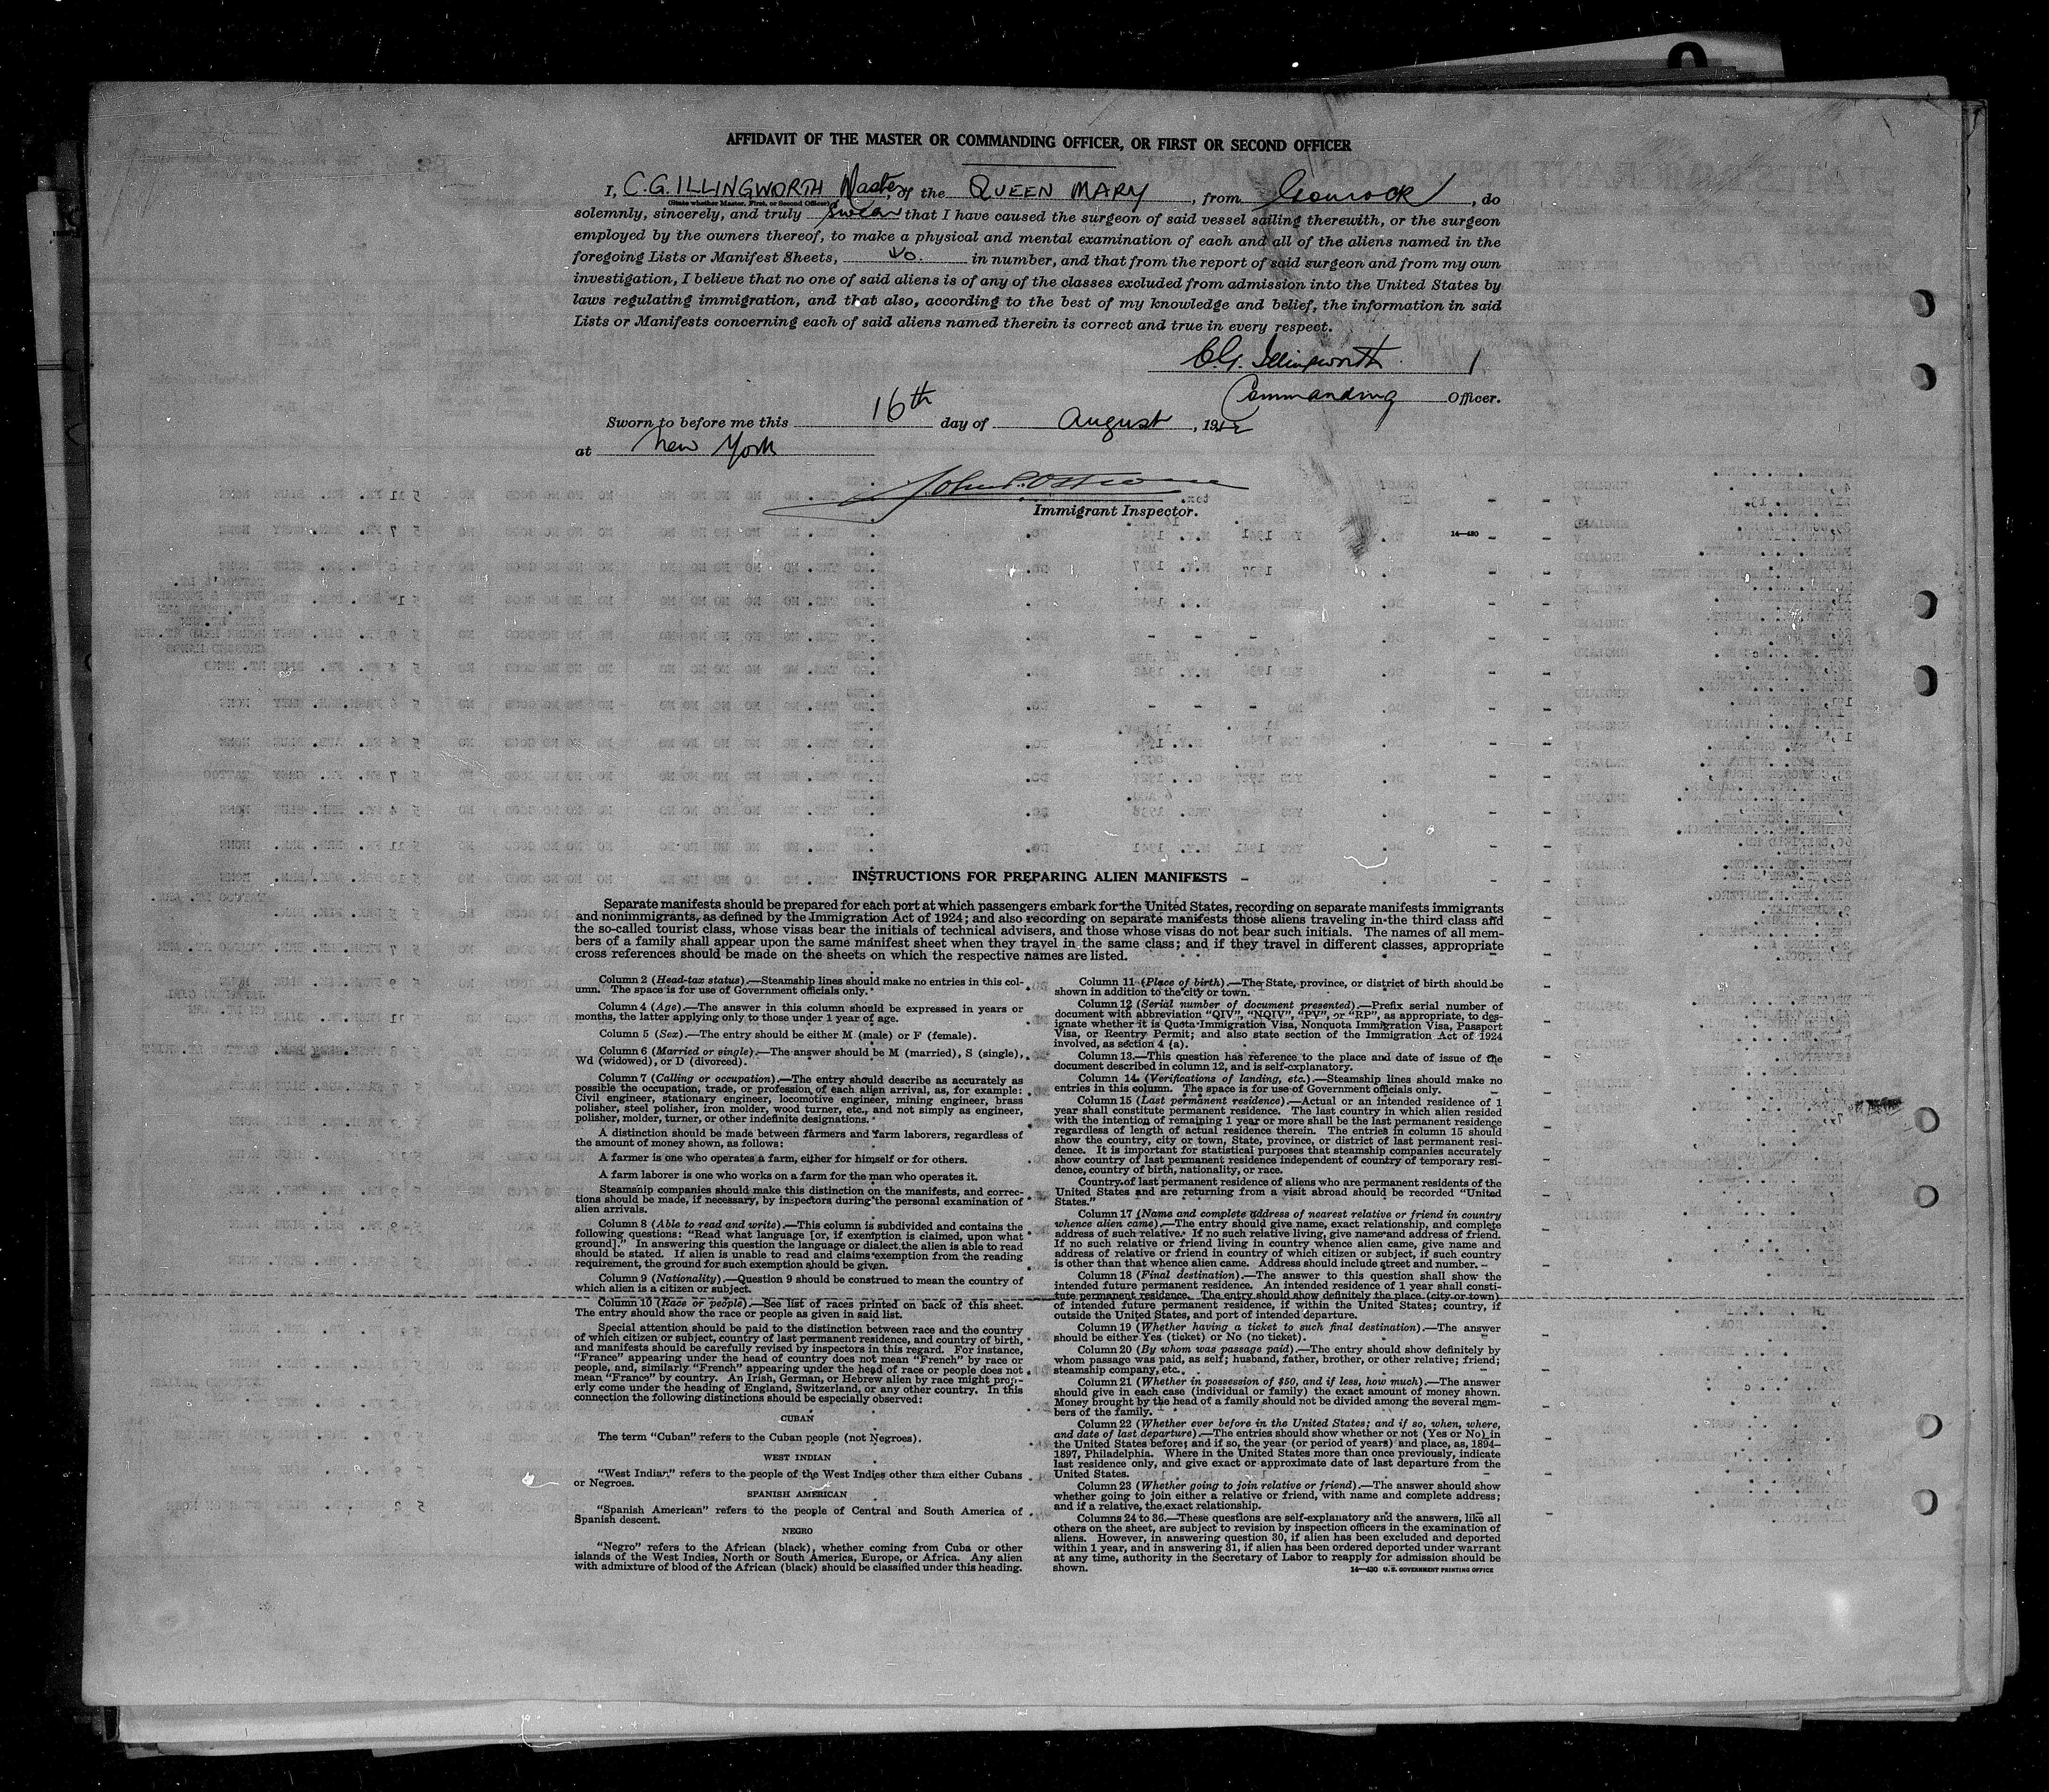 AFFIDAVIT OF THE MASTER OR COMMANDING OFFICER, OR FIRST OR SECOND OFFICER
I, C.G. ILLINGWORTH Master, of the QUEEN MARY, from Gourock, do
(State whether Master, First, or Second Officer)
solemnly, sincerely, and truly swear that I have caused the surgeon of said vessel sailing therewith, or the surgeon
employed by the owners thereof, to make a physical and mental examination of each and all of the aliens named in the
foregoing Lists or Manifest Sheets, in number, and that from the report of said surgeon and from my own
investigation, I believe that no one of said aliens is of any of the classes excluded from admission into the United States by
laws regulating immigration, and that also, according to the best of my knowledge and belief, the information in said
Lists or Manifests concerning each of said aliens named therein is correct and true in every respect.
C.G. Illingworth
Commanding Officer.
Sworn to before me this 16th day of August, 1942
at New York
Immigrant Inspector.
14—430
INSTRUCTIONS FOR PREPARING ALIEN MANIFESTS
Separate manifests should be prepared for each port at which passengers embark for the United States, recording on separate manifests immigrants
and nonimmigrants, as defined by the Immigration Act of 1924; and also recording on separate manifests those aliens traveling in the third class and
the so-called tourist class, whose visas bear the initials of technical advisers, and those whose visas do not bear such initials. The names of all mem-
bers of a family shall appear upon the same manifest sheet when they travel in the same class; and if they travel in different classes, appropriate
cross references should be made on the sheets on which the respective names are listed.
Column 2 (Head-tax status).—Steamship lines should make no entries in this col-
umn. The space is for use of Government officials only.
Column 4 (Age).—The answer in this column should be expressed in years or
months, the latter applying only to those under 1 year of age.
Column 5 (Sex).—The entry should be either M (male) or F (female).
Column 6 (Married or single).—The answer should be M (married), S (single),
Wd (widowed), or D (divorced).
Column 7 (Calling or occupation).—The entry should describe as accurately as
possible the occupation, trade, or profession of each alien arrival, as, for example:
Civil engineer, stationary engineer, locomotive engineer, mining engineer, brass
polisher, steel polisher, iron molder, wood turner, etc., and not simply as engineer,
polisher, molder, turner, or other indefinite designations.
A distinction should be made between farmers and farm laborers, regardless of
the amount of money shown, as follows:
A farmer is one who operates a farm, either for himself or for others.
A farm laborer is one who works on a farm for the man who operates it.
Steamship companies should make this distinction on the manifests, and correc-
tions should be made, if necessary, by inspectors during the personal examination of
alien arrivals.
Column 8 (Able to read and write).—This column is subdivided and contains the
following questions: "Read what language [or, if exemption is claimed, upon what
ground]." In answering this question the language or dialect the alien is able to read
should be stated. If alien is unable to read and claims exemption from the reading
requirement, the ground for such exemption should be given.
Column 9 (Nationality).—Question 9 should be construed to mean the country of
which alien is a citizen or subject.
Column 10 (Race or people).—See list of races printed on back of this sheet.
The entry should show the race or people as given in said list.
Special attention should be paid to the distinction between race and the country
of which citizen or subject, country of last permanent residence, and country of birth,
and manifests should be carefully revised by inspectors in this regard. For instance,
"France" appearing under the head of country does not mean "French" by race or
people, and, similarly "French" appearing under the head of race or people does not
mean "France" by country. An Irish, German, or Hebrew alien by race might prop-
erly come under the heading of England, Switzerland, or any other country. In this
connection the following distinctions should be especially observed:
CUBAN
The term "Cuban" refers to the Cuban people (not Negroes).
WEST INDIAN
"West Indian" refers to the people of the West Indies other than either Cubans
or Negroes.
SPANISH AMERICAN
"Spanish American" refers to the people of Central and South America of
Spanish descent.
NEGRO
"Negro" refers to the African (black), whether coming from Cuba or other
islands of the West Indies, North or South America, Europe, or Africa. Any alien
with admixture of blood of the African (black) should be classified under this heading.
Column 11 (Place of birth).—The State, province, or district of birth should be
shown in addition to the city or town.
Column 12 (Serial number of document presented).—Prefix serial number of
document with abbreviation "QIV", "NQIV", "PV", or "RP", as appropriate, to des-
ignate whether it is Quota Immigration Visa, Nonquota Immigration Visa, Passport
Visa, or Reentry Permit; and also state section of the Immigration Act of 1924
involved, as section 4 (a).
Column 13.—This question has reference to the place and date of issue of the
document described in column 12, and is self-explanatory.
Column 14. (Verifications of landing, etc.).—Steamship lines should make no
entries in this column. The space is for use of Government officials only.
Column 15 (Last permanent residence).—Actual or an intended residence of 1
year shall constitute permanent residence. The last country in which alien resided
with the intention of remaining 1 year or more shall be the last permanent residence
regardless of length of actual residence therein. The entries in column 15 should
show the country, city or town, State, province, or district of last permanent resi-
dence. It is important for statistical purposes that steamship companies accurately
show country of last permanent residence independent of country of temporary resi-
dence, country of birth, nationality, or race.
Country of last permanent residence of aliens who are permanent residents of the
United States and are returning from a visit abroad should be recorded "United
States."
Column 17 (Name and complete address of nearest relative or friend in country
whence alien came).—The entry should give name, exact relationship, and complete
address of such relative. If no such relative living, give name and address of friend.
If no such relative or friend living in country whence alien came, give name and
address of relative or friend in country of which citizen or subject, if such country
is other than that whence alien came. Address should include street and number.
Column 18 (Final destination).—The answer to this question shall show the
intended future permanent residence. An intended residence of 1 year shall consti-
tute permanent residence. The entry should show definitely the place (city or town)
of intended future permanent residence, if within the United States; country, if
outside the United States, and port of intended departure.
Column 19 (Whether having a ticket to such final destination).—The answer
should be either Yes (ticket) or No (no ticket).
Column 20 (By whom was passage paid).—The entry should show definitely by
whom passage was paid, as self; husband, father, brother, or other relative; friend;
steamship company, etc.
Column 21 (Whether in possession of $50, and if less, how much).—The answer
should give in each case (individual or family) the exact amount of money shown.
Money brought by the head of a family should not be divided among the several mem-
bers of the family.
Column 22 (Whether ever before in the United States; and if so, when, where,
and date of last departure).—The entries should show whether or not (Yes or No) in
the United States before; and if so, the year (or period of years) and place, as, 1894–
1897, Philadelphia. Where in the United States more than once previously, indicate
last residence only, and give exact or approximate date of last departure from the
United States.
Column 23 (Whether going to join relative or friend).—The answer should show
whether going to join either a relative or friend, with name and complete address;
and if a relative, the exact relationship.
Columns 24 to 36.—These questions are self-explanatory and the answers, like all
others on the sheet, are subject to revision by inspection officers in the examination of
aliens. However, in answering question 30, if alien has been excluded and deported
within 1 year, and in answering 31, if alien has been ordered deported under warrant
at any time, authority in the Secretary of Labor to reapply for admission should be
shown.
14—430 U.S. GOVERNMENT PRINTING OFFICE